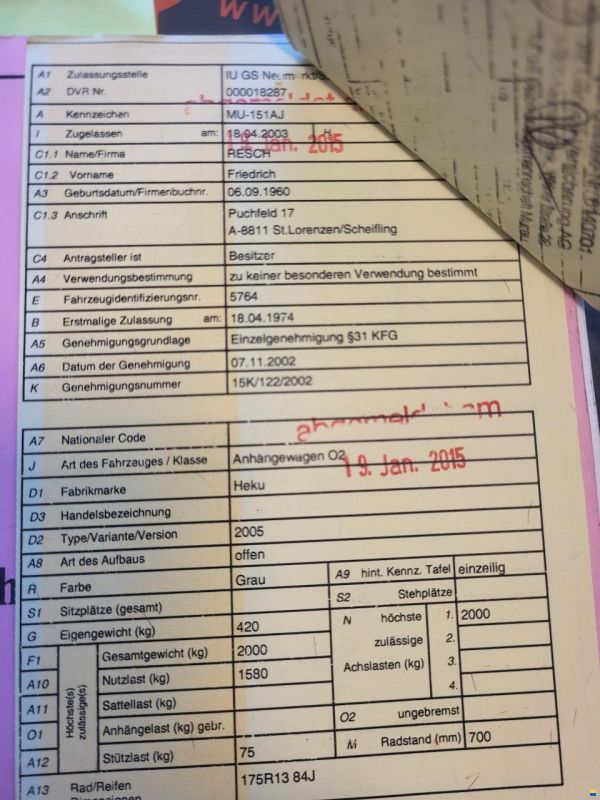 www
A1 Zulassungsstelle IU GS
A2 DVR Nr. 000018287
abgemeldet
A Kennzeichen MU-151AJ
I Zugelassen am: 18.04.2003 H
19. Jan. 2015
C1.1 Name/Firma RESCH
C1.2 Vorname Friedrich
A3 Geburtsdatum/Firmenbuchnr. 06.09.1960
C1.3 Anschrift Puchfeld 17
A-8811 St.Lorenzen/Scheifling
C4 Antragsteller ist Besitzer
A4 Verwendungsbestimmung zu keiner besonderen Verwendung bestimmt
E Fahrzeugidentifizierungsnr. 5764
B Erstmalige Zulassung am: 18.04.1974
A5 Genehmigungsgrundlage Einzelgenehmigung §31 KFG
A6 Datum der Genehmigung 07.11.2002
K Genehmigungsnummer 15K/122/2002
abgemeldet am
A7 Nationaler Code
J Art des Fahrzeuges / Klasse Anhängewagen O2
19. Jan. 2015
D1 Fabrikmarke Heku
D3 Handelsbezeichnung
D2 Type/Variante/Version 2005
A8 Art des Aufbaus offen
R Farbe Grau
A9 hint. Kennz. Tafel einzeilig
S1 Sitzplätze (gesamt)
S2 Stehplätze
G Eigengewicht (kg) 420
N höchste zulässige Achslasten (kg) 1. 2000
2.
3.
4.
Höchste(s) zulässige(s)
F1 Gesamtgewicht (kg) 2000
A10 Nutzlast (kg) 1580
A11 Sattellast (kg)
O1 Anhängelast (kg) gebr.
O2 ungebremst
A12 Stützlast (kg) 75
M Radstand (mm) 700
A13 Rad/Reifen 175R13 84J
Dimensionen